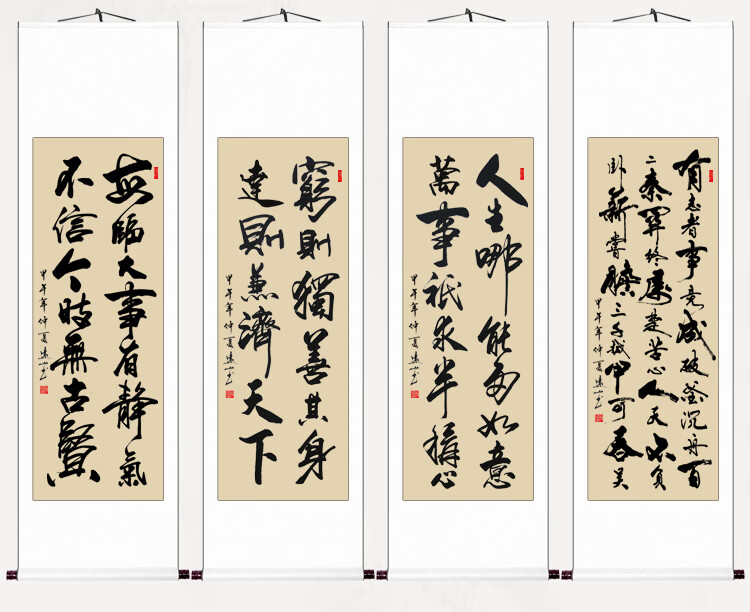 每臨大事有静氣
不信今時無古賢
甲午年仲夏
窮則獨善其身
達則兼濟天下
甲午年仲夏
人生哪能多如意
萬事祇求半稱心
甲午年仲夏
有志者事竟成破釜沉舟百
二秦関終屬楚苦心人天不負
卧薪嘗膽三千越甲可吞吴
甲午年仲夏